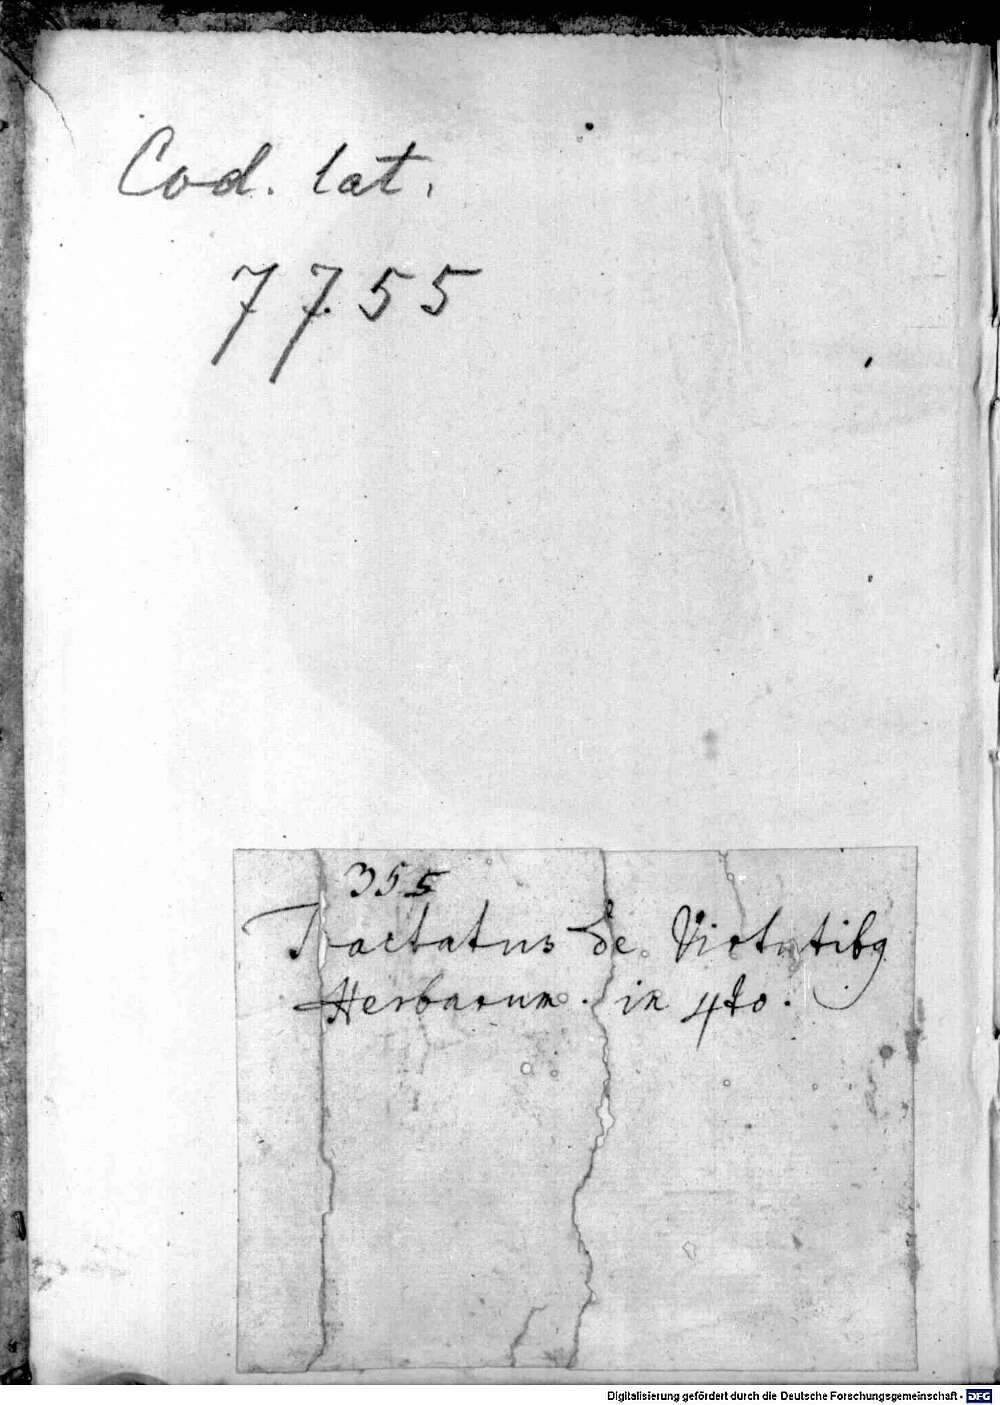 Cod. lat.
7755
355
Tractatus de Virtutibꝫ
Herbarum. in 4to.
Digitalisierung gefördert durch die Deutsche Forschungsgemeinschaft - DFG